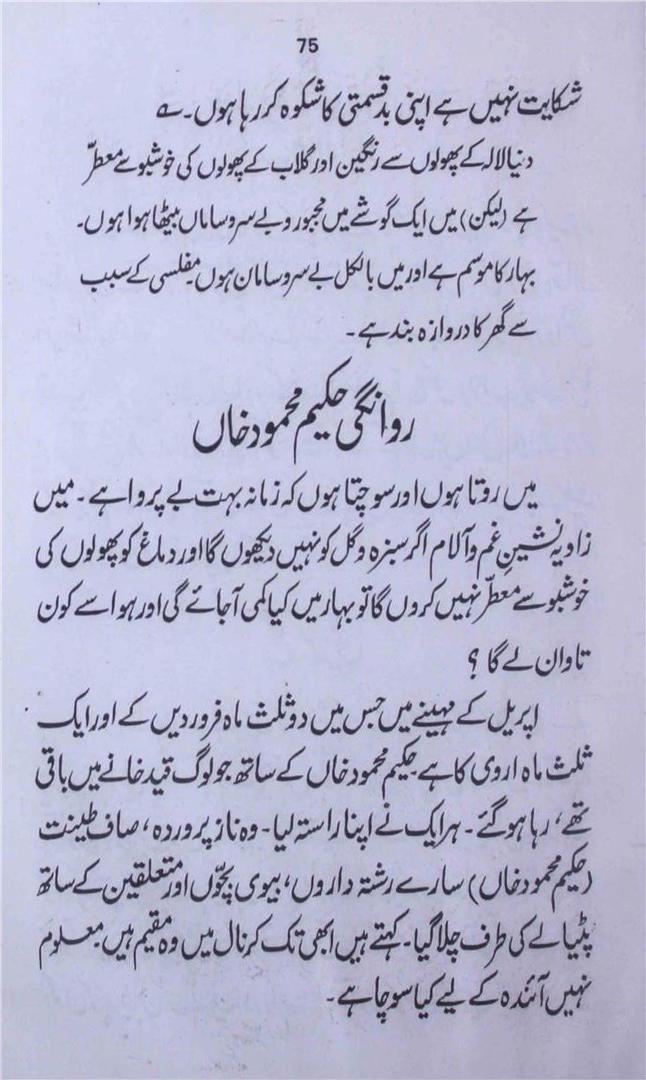 75
شکایت نہیں ہے اپنی بدقسمتی کا شکوہ کر رہا ہوں۔ ؎
دنیا لالہ کے پھولوں سے رنگین اور گلاب کے پھولوں کی خوشبو سے معطرّ
ہے (لیکن) میں ایک گوشے میں مجبور و بے سروساماں بیٹھا ہوا ہوں۔
بہار کا موسم ہے اور میں بالکل بے سروسامان ہوں۔ مفلسی کے سبب
سے گھر کا دروازہ بند ہے۔
روانگیِ حکیم محمود خاں
میں روتا ہوں اور سوچتا ہوں کہ زمانہ بہت بے پروا ہے۔ میں
زاویہ نشینِ غم و آلام اگر سبزہ و گل کو نہیں دیکھوں گا اور دماغ کو پھولوں کی
خوشبو سے معطرّ نہیں کروں گا تو بہار میں کیا کمی آجائے گی اور ہوا سے کون
تاوان لے گا ؟
اپریل کے مہینے میں جس میں دو ثلث ماہ فروردیں کے اور ایک
ثلث ماہ اروی کا ہے۔ حکیم محمود خاں کے ساتھ جو لوگ قید خانے میں باقی
تھے، رہا ہو گئے۔ ہر ایک نے اپنا راستہ لیا۔ وہ ناز پروردہ، صاف طینت
(حکیم محمود خاں) سارے رشتہ داروں، بیوی بچّوں اور متعلقین کے ساتھ
پٹیالے کی طرف چلا گیا۔ کہتے ہیں ابھی تک کرنال میں وہ مقیم ہیں۔ معلوم
نہیں آئندہ کے لیے کیا سوچا ہے۔